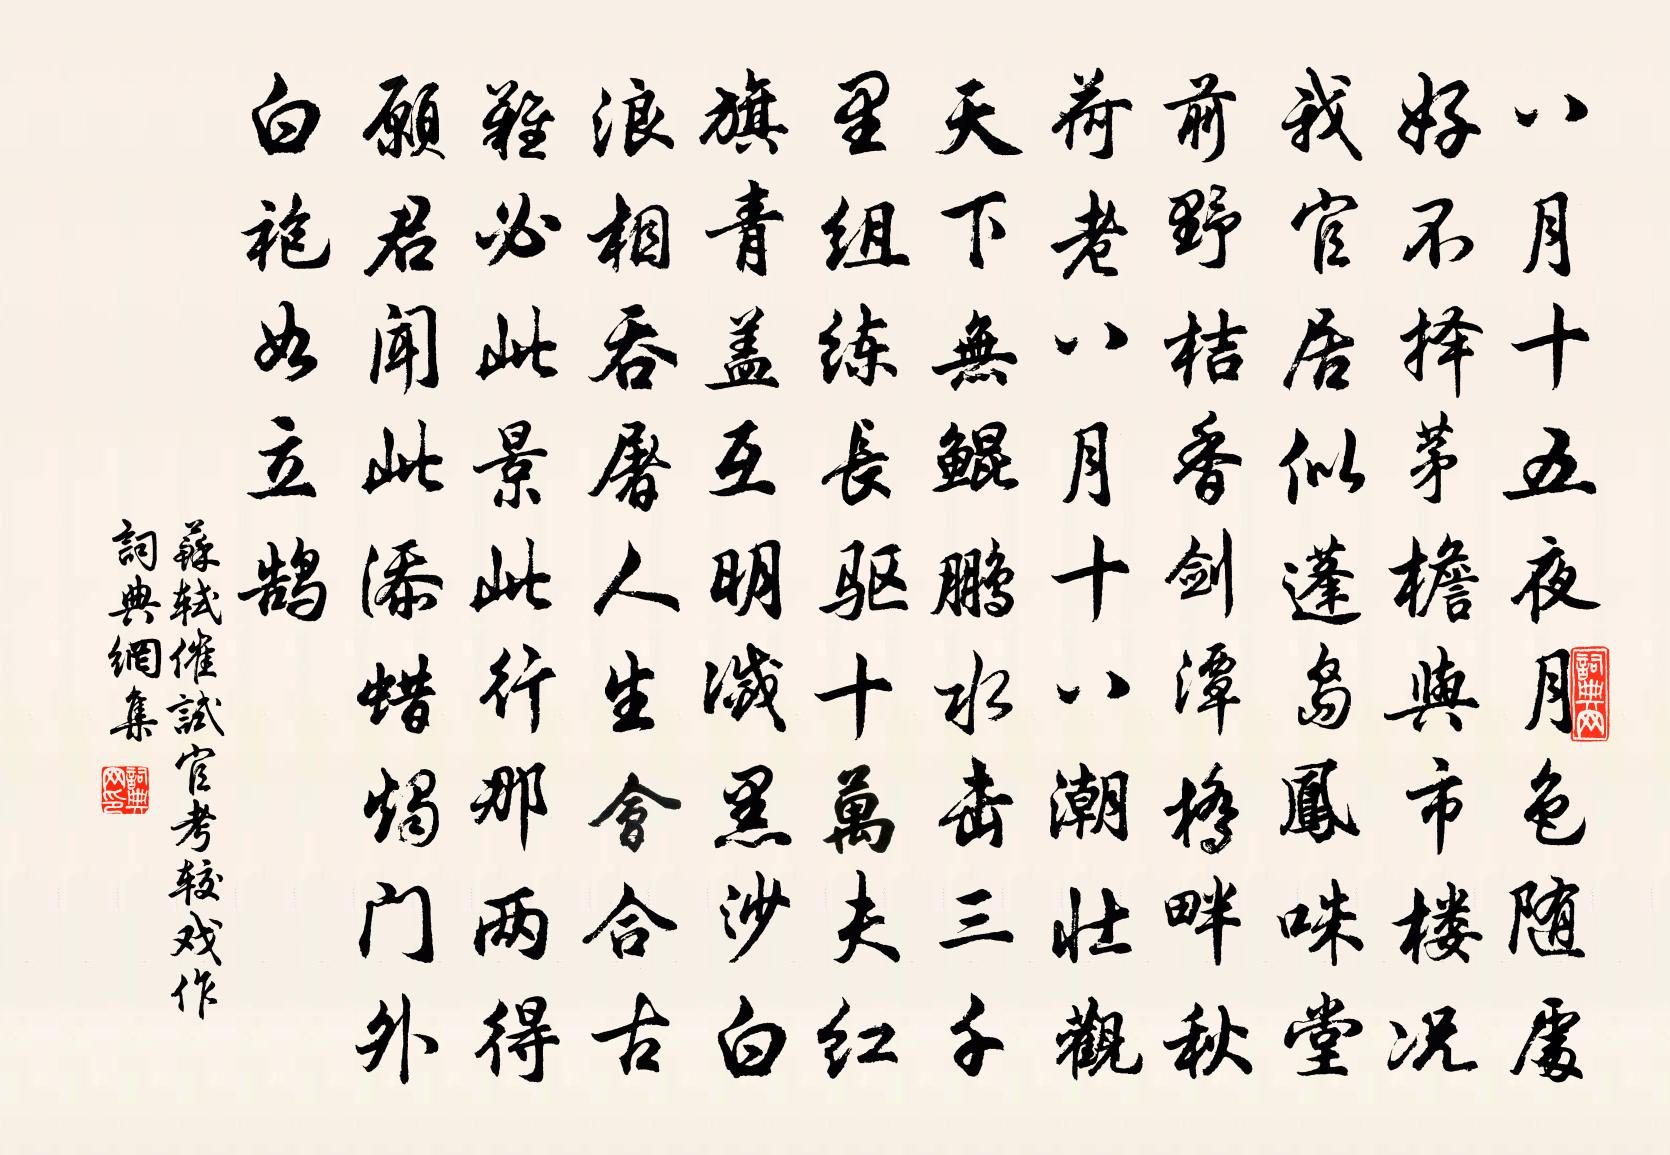 八月十五夜月色随處
好不择茅檐與市楼况
我官居似蓬島鳳咮堂
前野桔香剑潭橋畔秋
荷老八月十八潮壮觀
天下無鲲鹏水击三千
里组练長驱十萬夫红
旗青盖互明滅黑沙白
浪相吞屠人生會合古
難必此景此行那两得
願君闻此添蜡燭门外
白袍如立鹄
蘇轼催試官考较戏作
詞典網集
詞典网
詞典网印